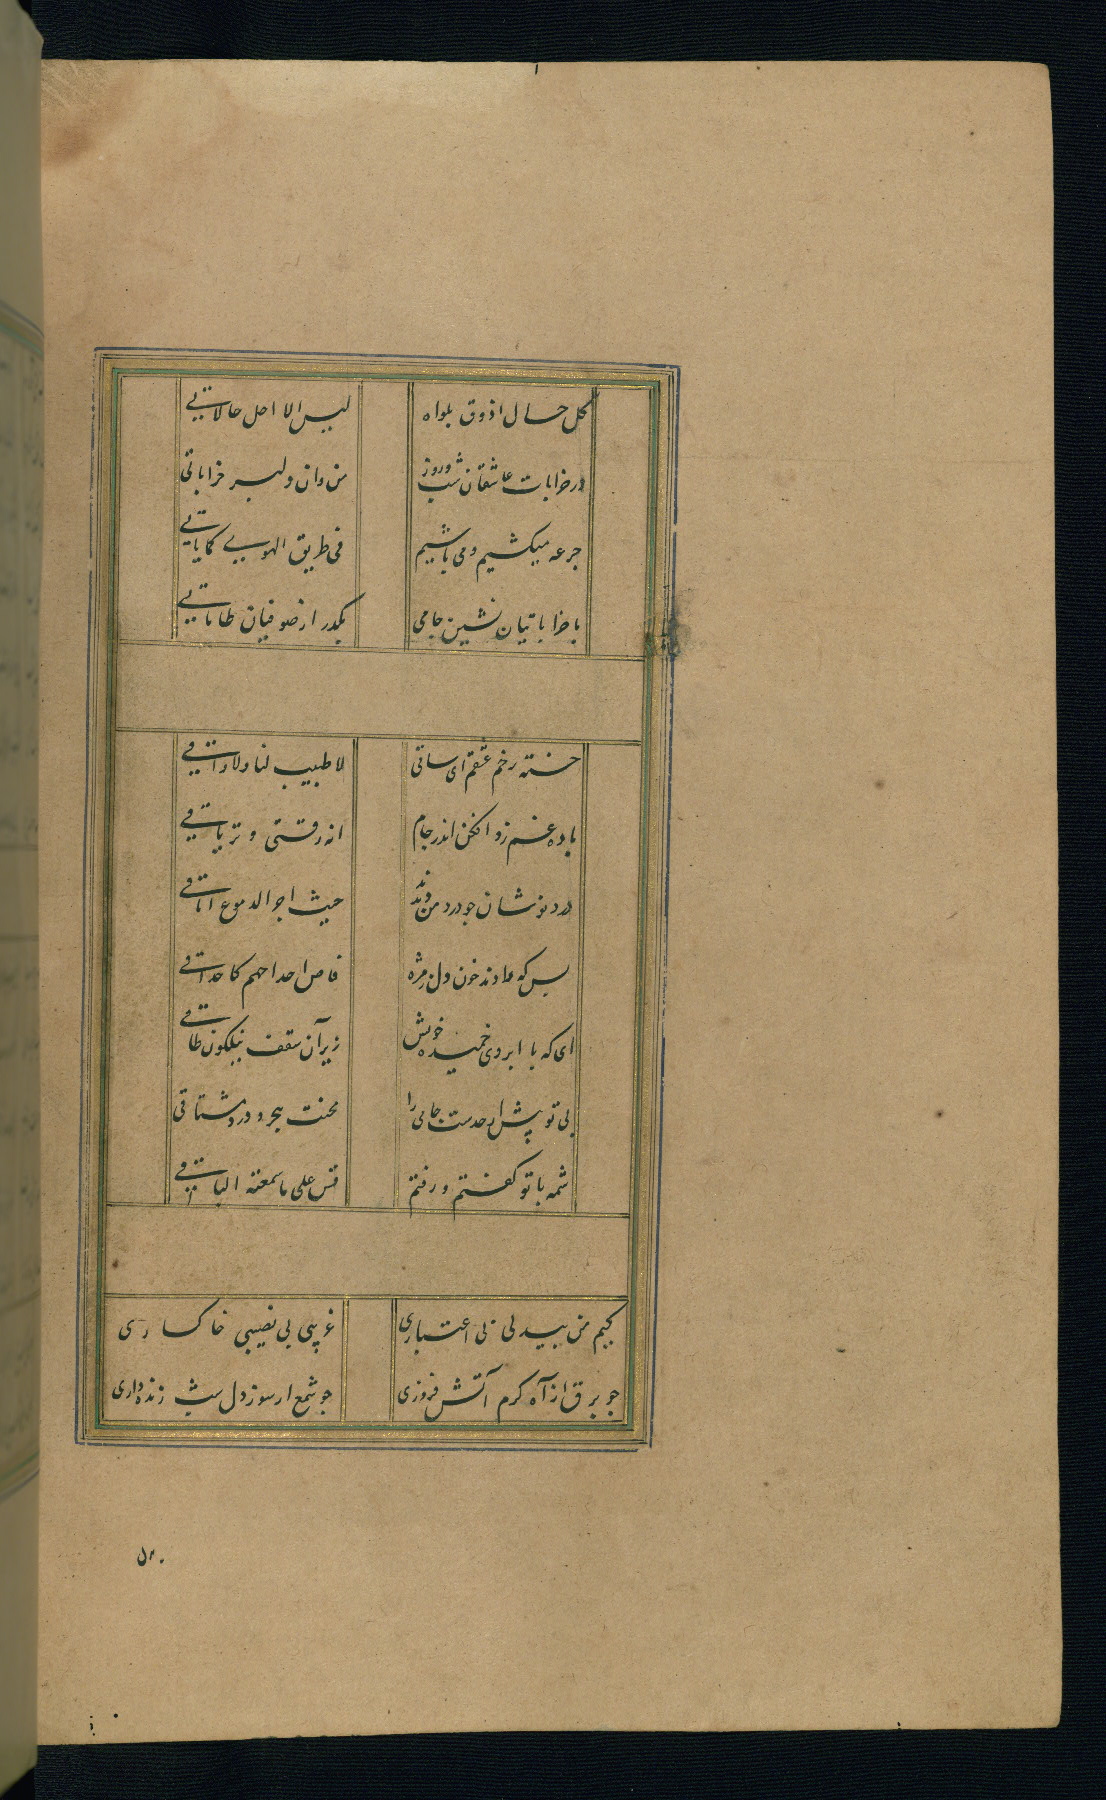 کل حال اذوق بلواه لیس الا اجل حالاتی
در خرابات عاشقان شب و روز من وان دلبر خراباتی
جرعه میکشیم و می باشیم فی طریق الهوی کمایاتی
با خراباتیان نشین جامی بکذر از صوفیان طاماتی
خسته زخم عشقم ای ساقی لا طبیب لنا ولا واقی
باده غم زدا فکن اندر جام انه رقیتی و تریاقی
درد نوشان جو درد من دیدند حیث اجر الدموع اماقی
بس که دادند خون دل ز مژه فاض احداحهم کاحداقی
ای که با ابروی خمیده خویش زیر آن سقف نیلکون طاقی
بی تو پیش از حدست جامی را محنت هجر و درد مشتاقی
شمه با تو کفتم و رفتم قس علی ما سمعته الباقی
کیم من بیدلی بی اعتباری غریبی بی نصیبی خاکساری
جو برق از آه کرم آتش فروزی جو شمع از سوز دل شب زنده داری